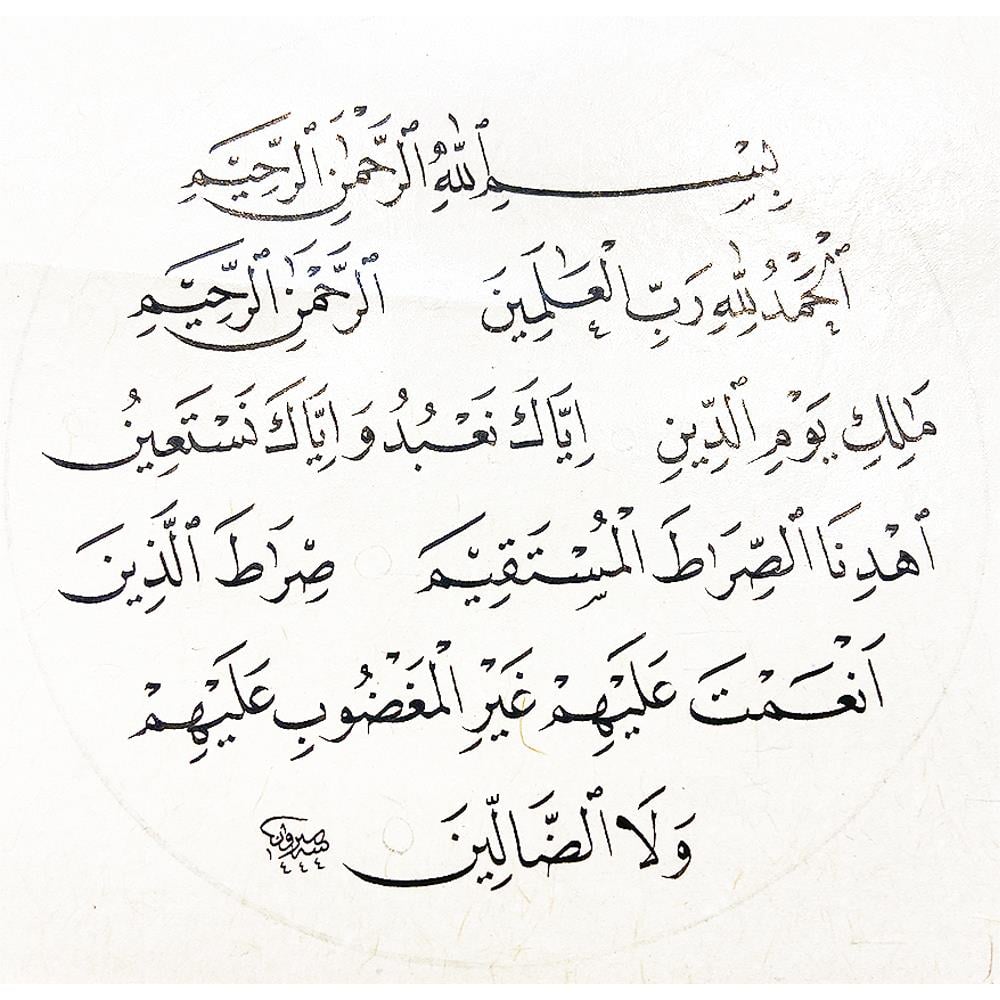 بِسْمِ ٱللَّهِ ٱلرَّحْمَٰنِ ٱلرَّحِيمِ
ٱلْحَمْدُ لِلَّهِ رَبِّ الْعَٰلَمِينَ ٱلرَّحْمَٰنِ ٱلرَّحِيمِ
مَٰلِكِ يَوْمِ ٱلدِّينِ اِيَّاكَ نَعْبُدُ وَاِيَّاكَ نَسْتَعِينُ
ٱهْدِنَا ٱلصِّرَاطَ الْمُسْتَقِيمَ صِرَاطَ ٱلَّذِينَ
اَنْعَمْتَ عَلَيْهِمْ غَيْرِ الْمَغْضُوبِ عَلَيْهِمْ
وَلَا ٱلضَّالِّينَ
سنه ١٤٤٤